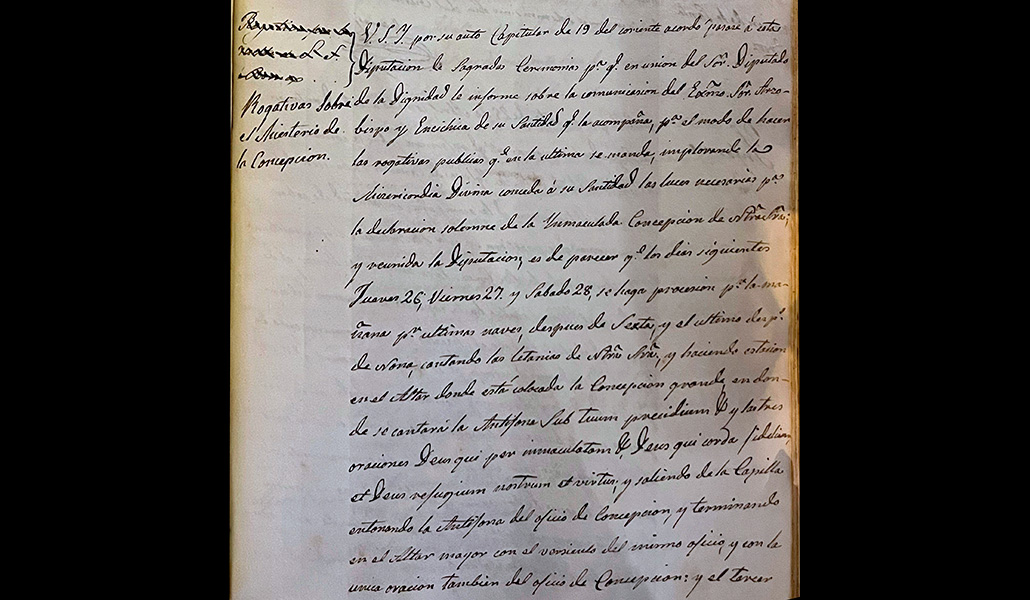 Rogativas sobre
el Misterio de
la Concepcion.
V. S. Y. por su auto Capitular de 19 del corriente acordó pasase á esta
Diputacion de Sagradas Ceremonias pª qᵉ en union del Sor. Diputado
de la Dignidad le informe sobre la comunicacion del Exmo. Sor. Arzo-
bispo y Enciclica de su Santidad qᵉ la acompaña, pª el modo de hacer
las rogativas publicas qᵉ en la ultima se manda, implorando la
Misericordia Divina conceda á su Santidad las luces necesarias pª
la declaracion solemne de la Ynmaculada Concepcion de Ntra Sra;
y reunida la Diputacion, es de parecer qᵉ los dias siguientes
Jueves 26, Viernes 27. y Sabado 28, se haga procesion pʳ la ma-
ñana pʳ ultimas naves, despues de Sexta, y el ultimo despˢ
de Nona, cantando las Letanias de Ntra Sra, y haciendo estacion
en el Altar donde está colocada la Concepcion grande, en don-
de se cantará la Antifona Sub tuum precidium & y las tres
oraciones Deus qui per inmaculatam & Deus qui corda fidelium,
et Deus refugium nostrum et virtus; y saliendo de la Capilla
entonando la Antifona del oficio de Concepcion, y terminando
en el Altar mayor con el versiculo del mismo oficio, y con la
unica oracion tambien del oficio de Concepcion: y el tercer